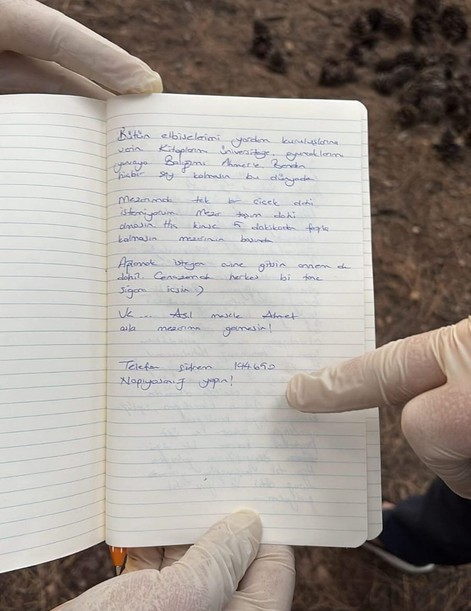 Bütün elbiselerimi yardım kuruluşlarına
verin Kitaplarım üniversiteye, oyuncaklarım
yuvaya Balyamı Ahmet'e Benden
hiçbir şey kalmasın bu dünyada
Mezarımda tek bir çiçek dahi
istemiyorum Mezar taşım dahi
olmasın Hiç kimse 5 dakikadan fazla
kalmasın mezarımın başında
Ağlamak isteyen evine gitsin annem de
dahil. Cenazemde herkes bi tane
sigara içsin :)
Ve... Asıl mesele Ahmet
asla mezarıma gelmesin!
Telefon şifrem 194650
Napıyosanız yapın!